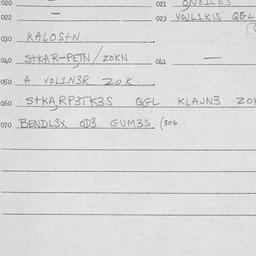 020
021 ONBILES
022 —
023 VOWL1KIS QGL
030 KALOStN
040 StKAR-PETN/ZOKN 041 —
050 A VOL1N3R ZOK
060 StKARP3TK3S QGL KLAJN3 ZOK
070 BENDL3X OD3 GUM3S. (306